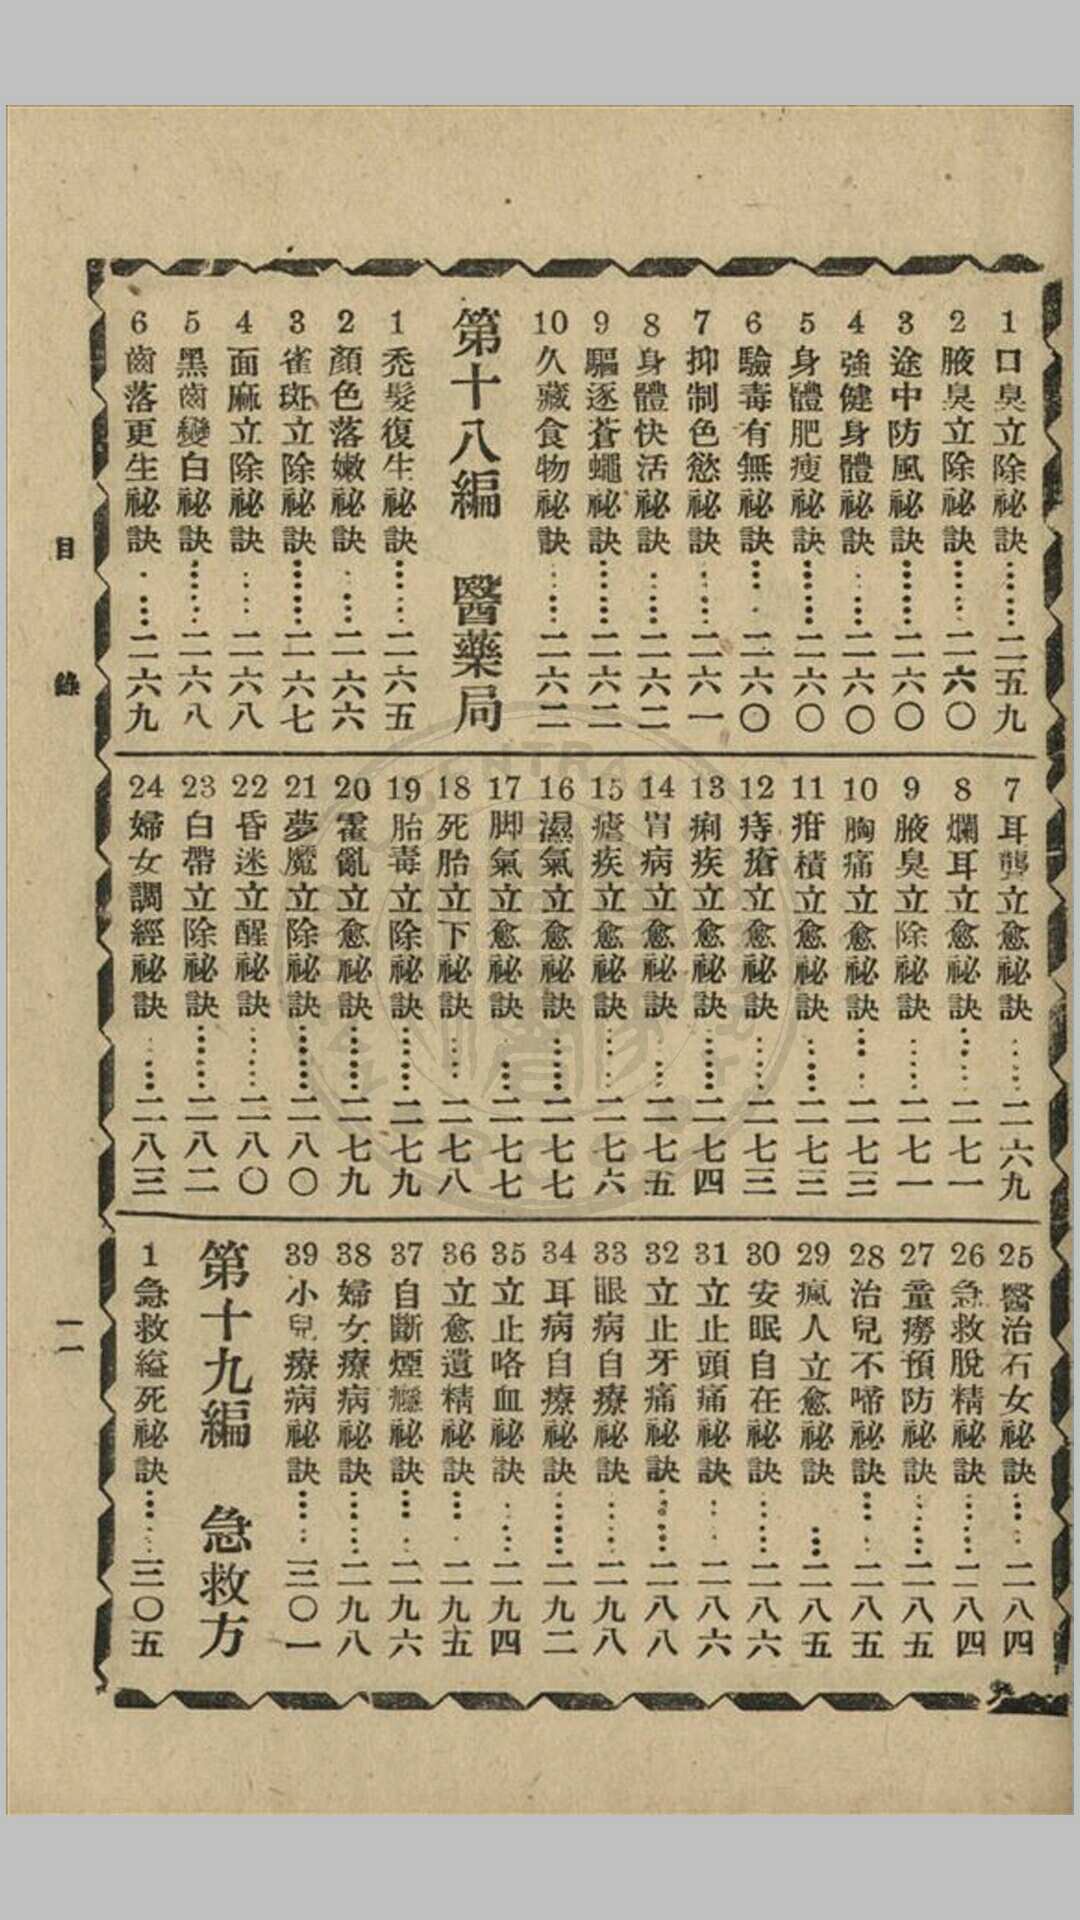 1口臭立除祕訣……二五九
2腋臭立除祕訣……二六〇
3途中防風祕訣……二六〇
4強健身體祕訣……二六〇
5身體肥瘦祕訣……二六〇
6驗毒有無祕訣……二六〇
7抑制色慾祕訣……二六一
8身體快活祕訣……二六二
9驅逐蒼蠅祕訣……二六二
10久藏食物祕訣……二六二
第十八編 醫藥局
1禿髮復生祕訣……二六五
2顏色落嫩祕訣……二六六
3雀斑立除祕訣……二六七
4面麻立除祕訣……二六八
5黑齒變白祕訣……二六八
6齒落更生祕訣……二六九
7耳聾立愈祕訣……二六九
8爛耳立愈祕訣……二七一
9腋臭立除祕訣……二七一
10胸痛立愈祕訣……二七三
11疳積立愈祕訣……二七三
12痔瘡立愈祕訣……二七三
13痢疾立愈祕訣……二七四
14胃病立愈祕訣……二七五
15瘧疾立愈祕訣……二七六
16濕氣立愈祕訣……二七七
17脚氣立愈祕訣……二七七
18死胎立下祕訣……二七八
19胎毒立除祕訣……二七九
20霍亂立愈祕訣……二七九
21夢魔立除祕訣……二八〇
22昏迷立醒祕訣……二八〇
23白帶立除祕訣……二八二
24婦女調經祕訣……二八三
25醫治石女祕訣……二八四
26急救脫精祕訣……二八四
27童癆預防祕訣……二八五
28治兒不啼祕訣……二八五
29瘋人立愈祕訣……二八五
30安眠自在祕訣……二八六
31立止頭痛祕訣……二八六
32立止牙痛祕訣……二八八
33眼病自療祕訣……二九八
34耳病自療祕訣……二九二
35立止咯血祕訣……二九四
36立愈遺精祕訣……二九五
37自斷煙癮祕訣……二九六
38婦女療病祕訣……二九八
39小兒療病祕訣……三〇一
第十九編 急救方
1急救縊死祕訣……三〇五
目錄
一二